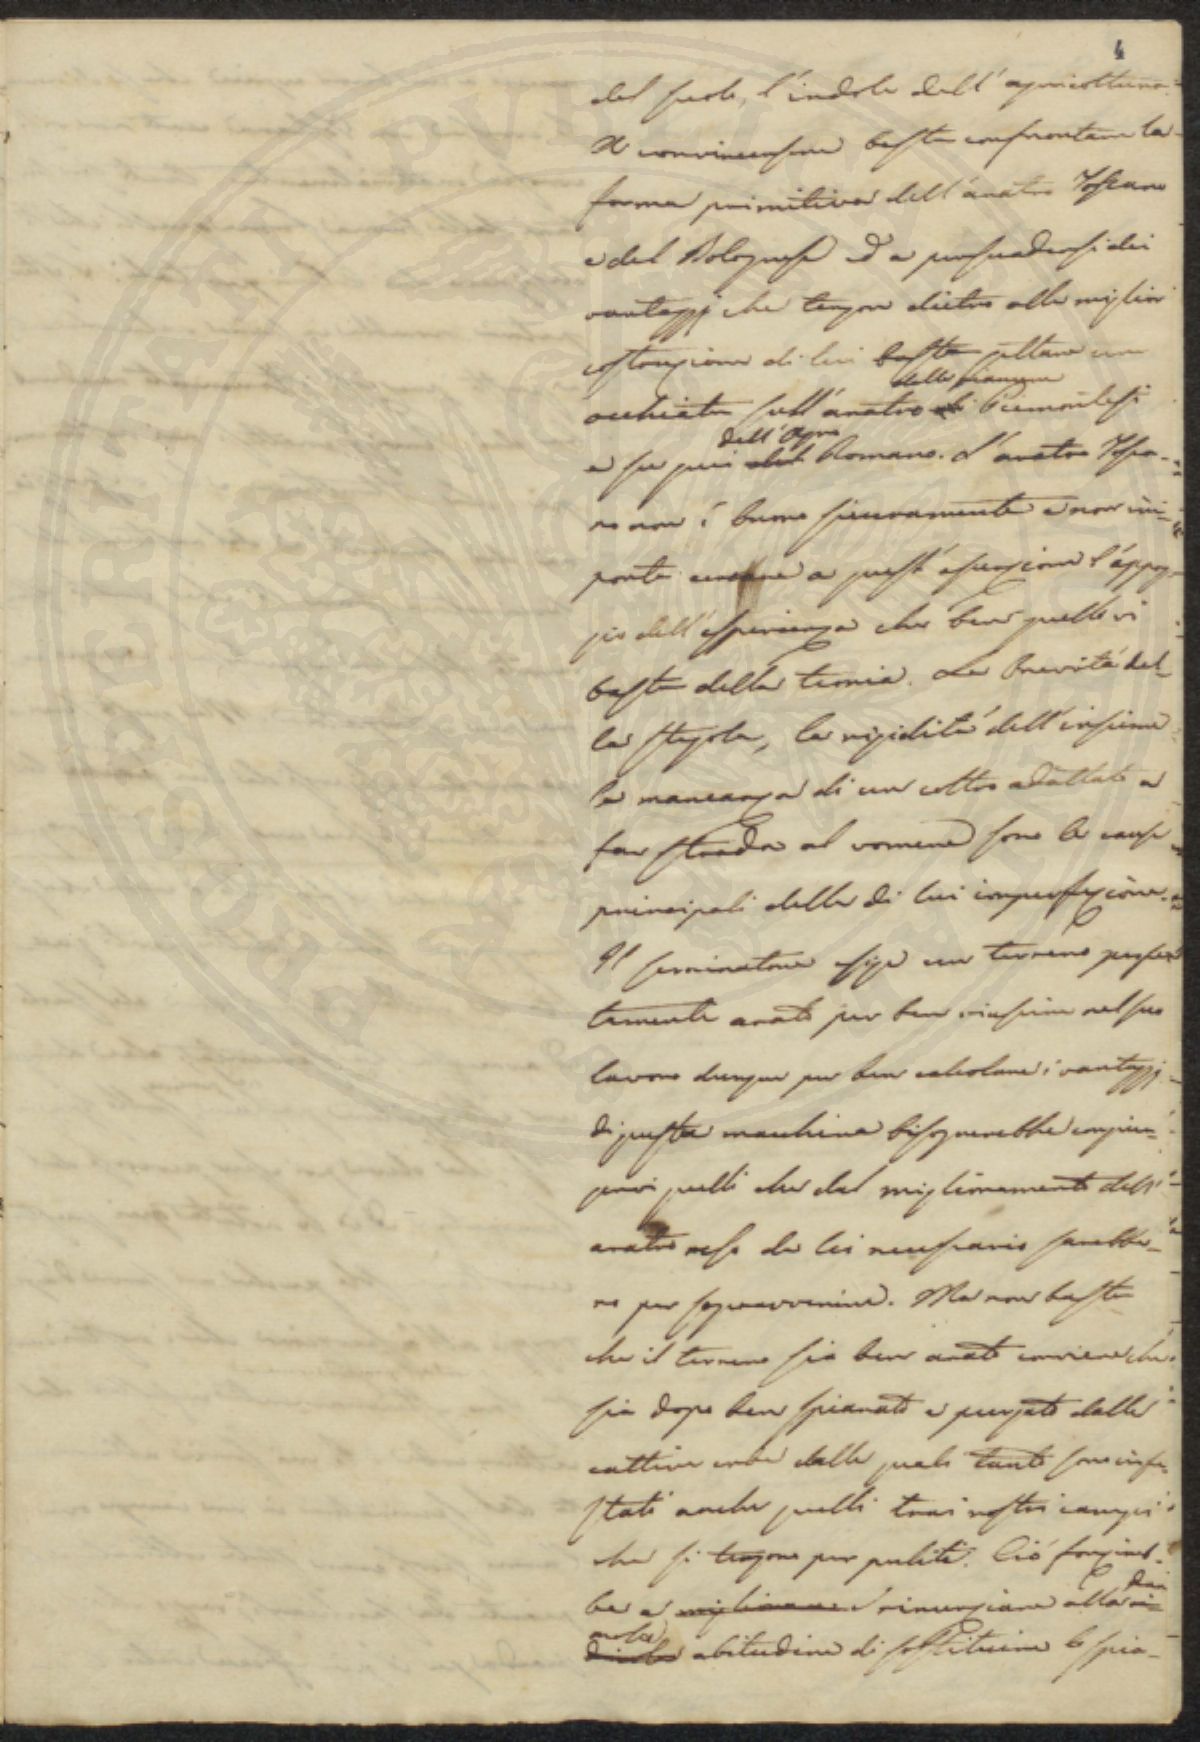 4
del suolo, l'indole dell'agricoltura.
A convincersene basta confrontare la
forma primitiva dell'aratro Toscano
e del Bolognese ed a persuadersi dei
vantaggi che tengon dietro alla miglior
costruzione di lui basta gettare un
delle pianure
occhiata sull'aratro di Piemontesi
dell'Agro
e su quei del Romano. L'aratro Tosca-
no non è buono sicuramente e non im-
porta cercare a quest'asserzione l'appog-
gio dell'esperienza che ben quello vi
basta della teoria. La brevità del-
la stegola, la rigidità dell'insieme
la mancanza di un coltro adattato a
far strada al vomere sono le cause
principali della di lui imperfezione.
Il seminatore esige un terreno perfet
tamente arato per ben riuscire nel suo
lavoro dunque per ben calcolare i vantaggi
di questa macchina bisognerebbe
quelli che dal miglioramento dell'
aratro reso da lei necessario sarebbe-
ro per sopravvenire. Ma non basta
che il terreno sia ben arato conviene che
sia dopo ben spianato e purgato dalle
cattive erbe dalle quali tanto sono infe-
stati anche quelli trai nostri campi
che si tengono per puliti. Ciò forzereb-
be a migliorare e rinunziare alla ri-
dannosa
dicola abitudine di sostituire lo spia-